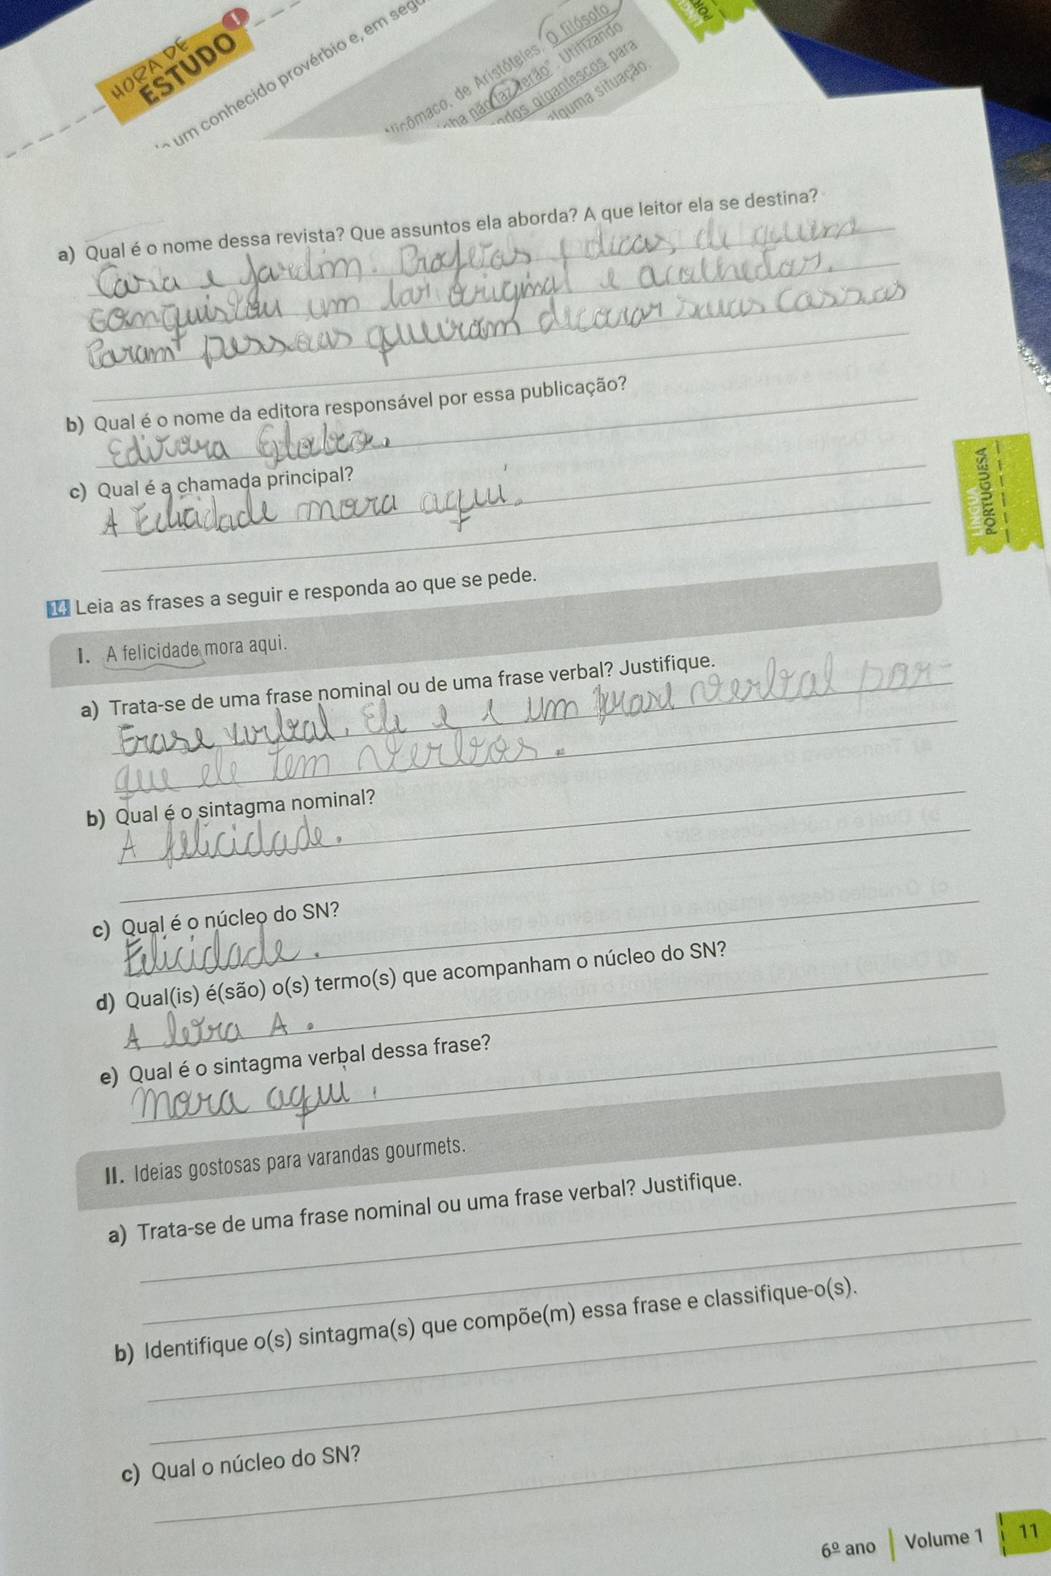 HORA DE
ESTUDO
1
um conhecido provérbio e, em
de Aristóteles. O filósofo
não faz verão". Utilizando
gigantescos para
alguma situação.
a) Qual é o nome dessa revista? Que assuntos ela aborda? A que leitor ela se destina?
e Jardim. dicas de quem
um lar original e
pessoas
b) Qual é o nome da editora responsável por essa publicação?
c) Qual é a chamada principal?
A mora aqui.
LÍNGUA
PORTUGUESA
14 Leia as frases a seguir e responda ao que se pede.
I. A felicidade mora aqui.
a) Trata-se de uma frase nominal ou de uma frase verbal? Justifique.
Frase verbal. Ele e é um frase verbal por-
que ele tem verbos.
b) Qual é o sintagma nominal?
A felicidade.
c) Qual é o núcleo do SN?
Felicidade.
d) Qual(is) é(são) o(s) termo(s) que acompanham o núcleo do SN?
A letra A.
e) Qual é o sintagma verbal dessa frase?
Mora aqui.
II. Ideias gostosas para varandas gourmets.
a) Trata-se de uma frase nominal ou uma frase verbal? Justifique.
b) Identifique o(s) sintagma(s) que compõe(m) essa frase e classifique-o(s).
c) Qual o núcleo do SN?
6º ano Volume 1 11